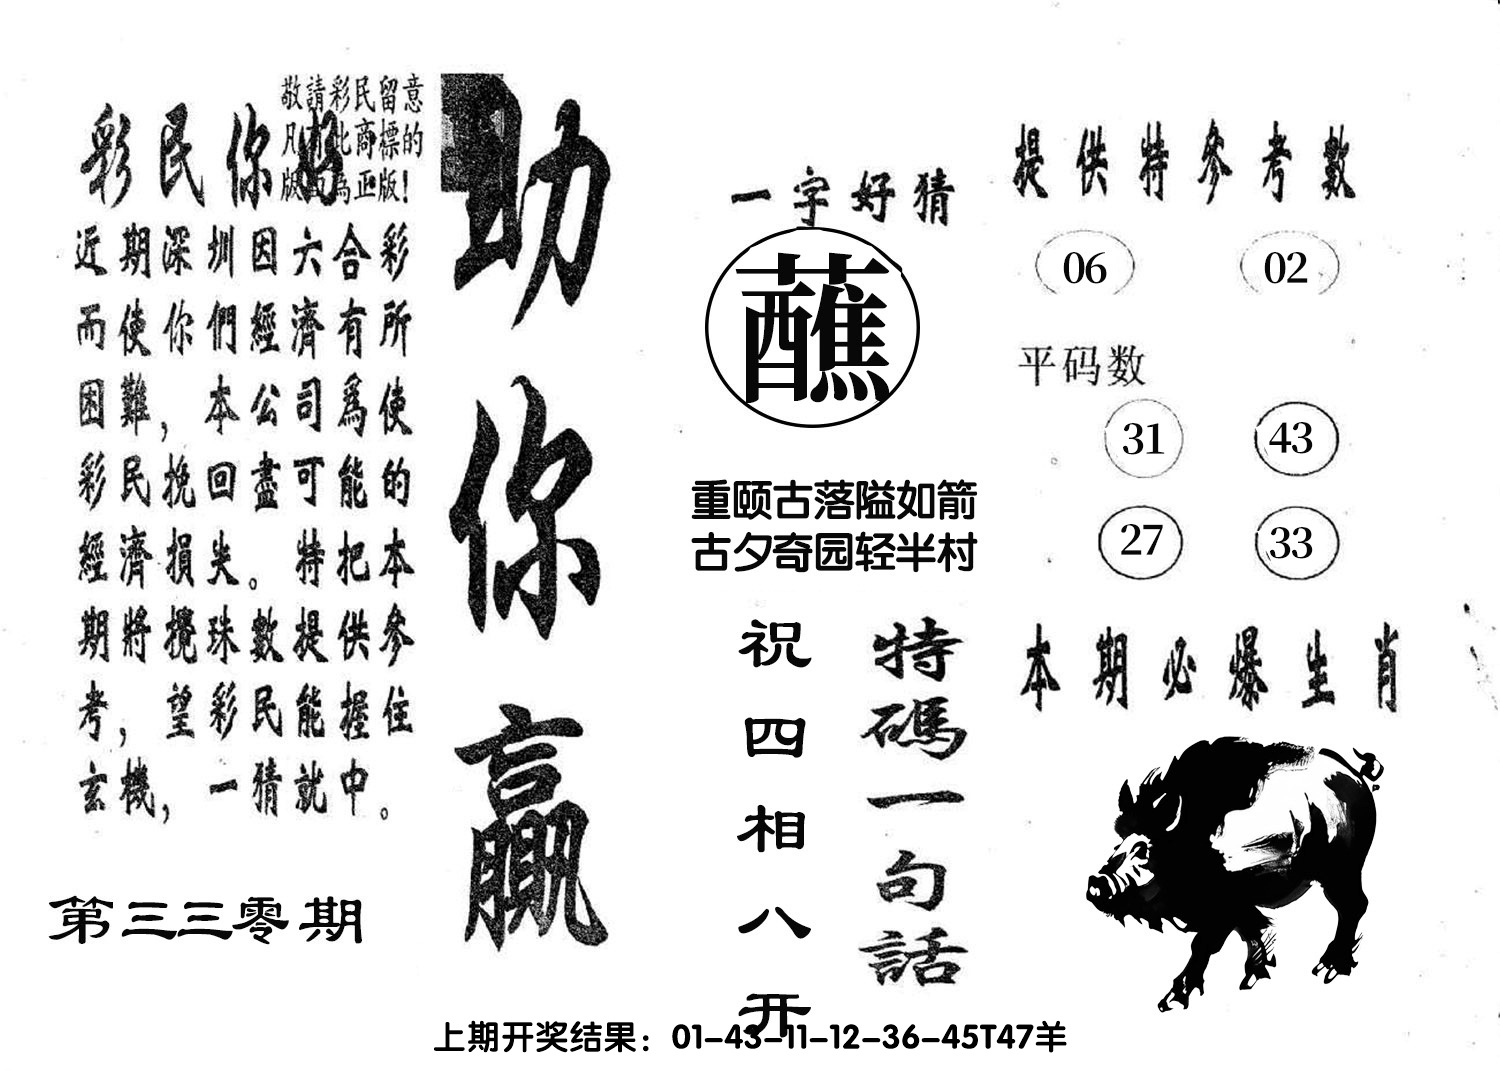 敬請彩民留意
凡有此商標的
版面為正版!
彩民你好
近期深圳因六合彩
而使你們經濟有所
困難，本公司爲使
彩民挽回盡可能的
經濟損失。特把本
期將攪珠數提供參
考，望彩民能握住
玄機，一猜就中。
第三三零期
助你贏
一字好猜
蘸
重颐古落隘如箭
古夕奇园轻半村
特碼一句話
祝四相八开
提供特參考數
06 02
平码数
31 43
27 33
本期必爆生肖
上期开奖结果：01-43-11-12-36-45T47羊